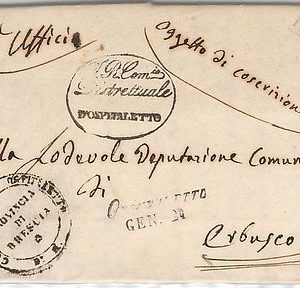 Ufficio
Oggetto di coscrizione
I. R. Com.
Distrettuale
D'OSPITALETTO
lla Lodevole Deputazione Comun
di
Erbusco
OSPITALETTO
GEN.
OSPITALETTO
PROVINCIA
DI
BRESCIA